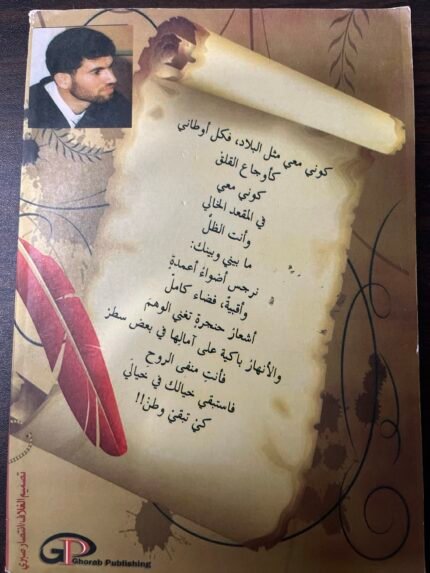 كوني معي مثل البلاد، فكل أوطاني
كأوجاع القلق
كوني معي
في المقعد الخالي
وأنت الظلُّ
ما بيني وبينك:
نرجس أضواءُ أعمدةٍ
وأقبيةٌ، فضاء كاملٌ
أشعار حنجرةٍ تغني الوهمَ
والأنهارَ باكية على آمالها في بعض سطرْ
فأنتِ منفى الروح
فاستبقي خيالك في خيالي
كيْ تبقيْ وطن!!
تصميم الغلاف انتصار صبري
GP
Ghorab Publishing